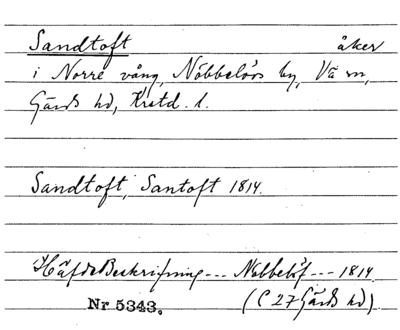 Sandtoft åker
i Norre vång, Nöbbelövs by, Vä sn,
Gärds hd, Krstd. l.
Sandtoft, Santoft 1814.
Häfde Beskrifning --- Nobbelöf --- 1814
Nr 5343. (C 27 Gärds hd)